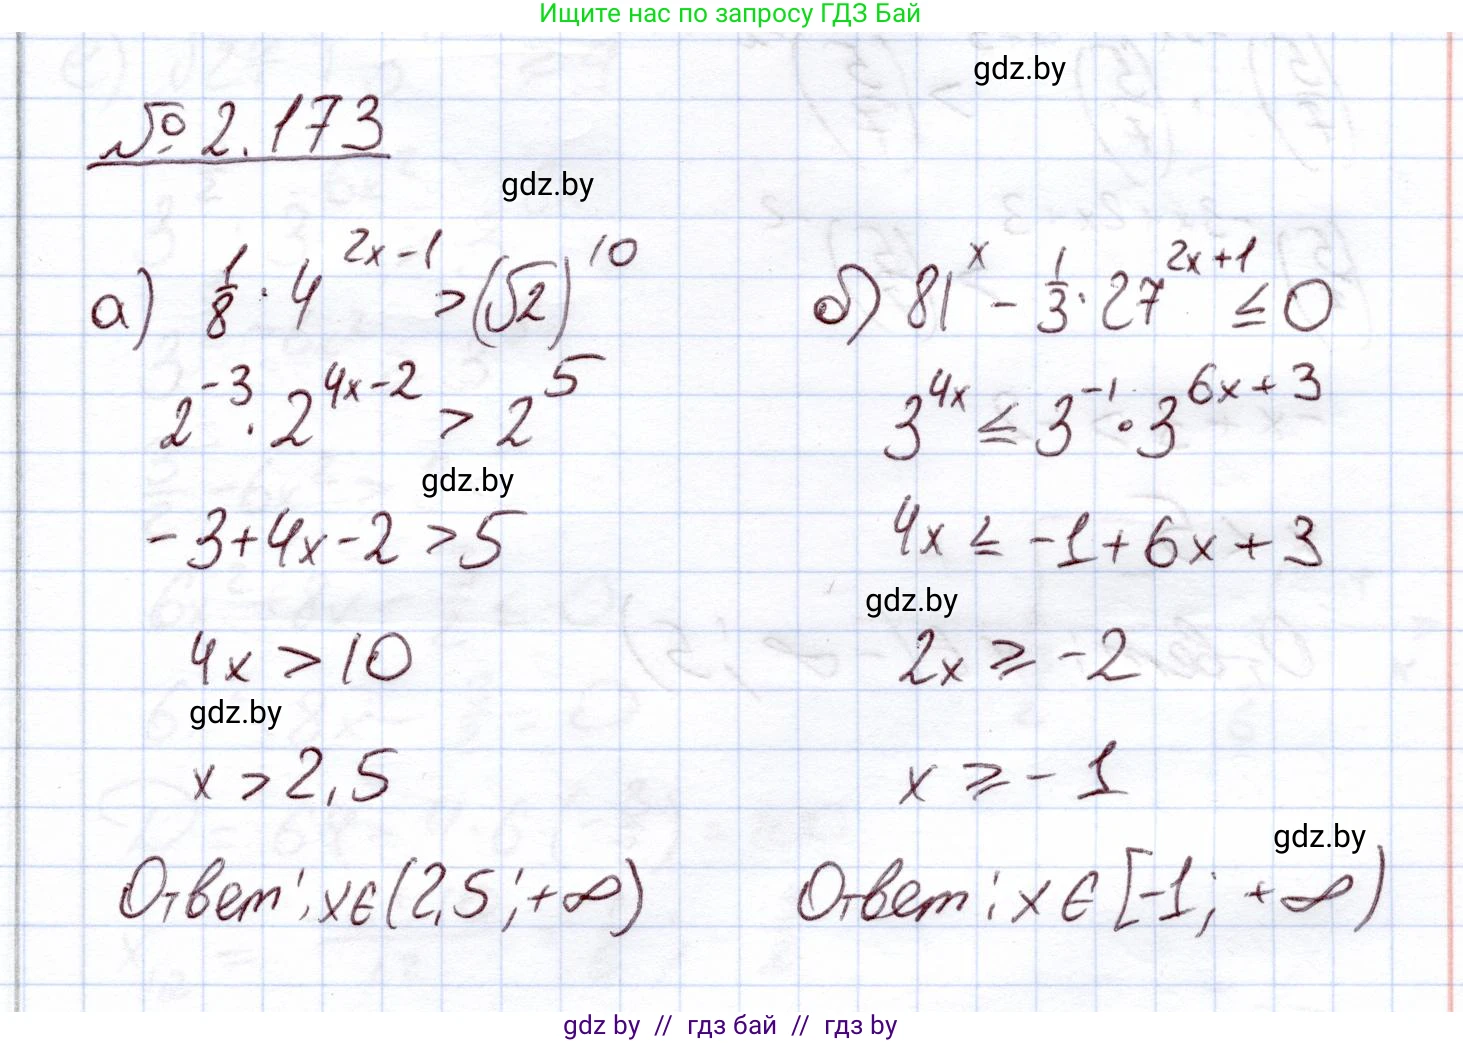 Ищите нас по запросу ГДЗ Бай
gdz.by
№ 2.173
gdz.by
а) 1/8 · 4^(2x-1) > (√2)^10
2^(-3) · 2^(4x-2) > 2^5
gdz.by
-3+4x-2 > 5
4x > 10
gdz.by
x > 2,5
Ответ: x∈(2,5; +∞)
б) 81^x - 1/3 · 27^(2x+1) ≤ 0
3^(4x) ≤ 3^(-1) · 3^(6x+3)
4x ≤ -1+6x+3
gdz.by
2x ≥ -2
x ≥ -1
gdz.by
Ответ: x ∈ [-1; +∞)
gdz by // гдз бай // гдз by